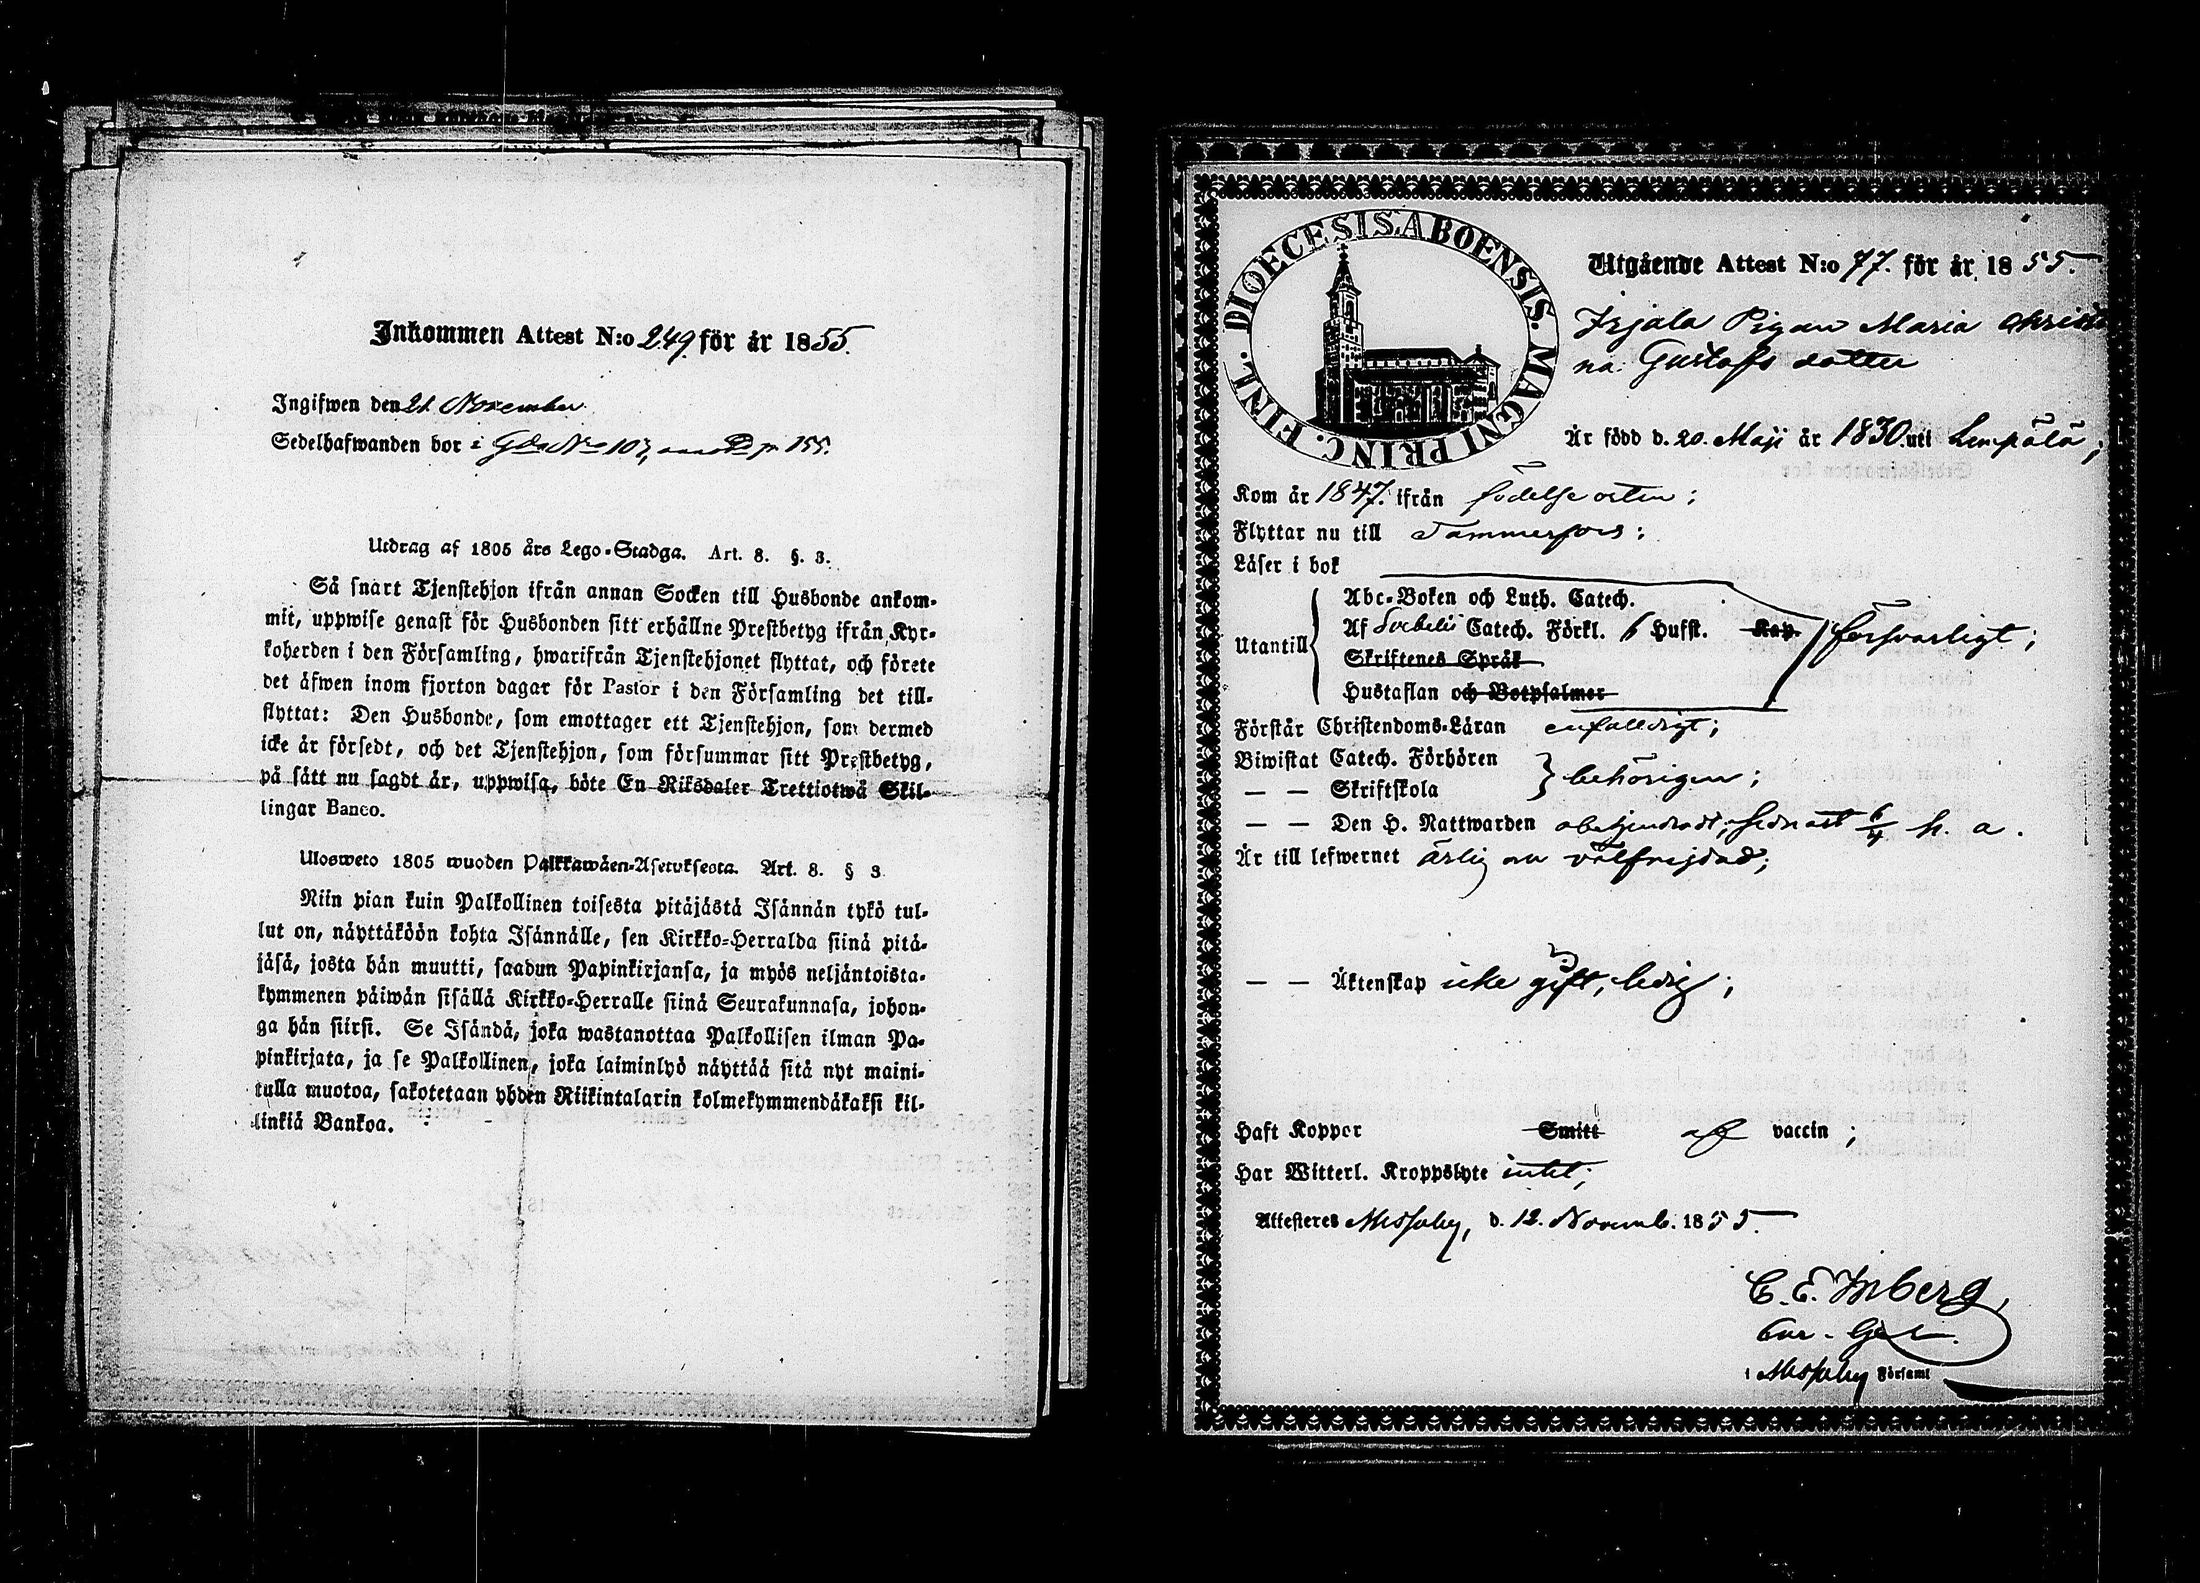 Inkommen Attest N:o 249 för år 1855.
Ingifwen den 21 November
Sedelhafwanden bor i Gdn No 107, pr 155.
Utdrag af 1805 års Lego-Stadga. Art. 8. §. 3.
Så snart Tjenstehjon ifrån annan Socken till Husbonde ankom-
mit, uppwise genast för Husbonden sitt erhållne Prestbetyg ifrån Kyr-
koherden i den Församling, hwarifrån Tjenstehjonet flyttat, och förete
det äfwen inom fjorton dagar för Pastor i den Församling det till-
flyttat: Den Husbonde, som emottager ett Tjenstehjon, som dermed
icke är försedt, och det Tjenstehjon, som försummar sitt Prestbetyg,
på sätt nu sagdt är, uppwisa, böte En Riksdaler Trettiotwå Skil-
lingar Banco.
Ulosweto 1805 wuoden Palkkawäen-Asetuksesta. Art. 8. § 3
Niin pian kuin Palkollinen toisesta pitäjästä Isännän tykö tul-
lut on, näyttäköön kohta Isännälle, sen Kirkko-Herralda siinä pitä-
jäsä, josta hän muutti, saadun Papinkirjansa, ja myös neljäntoista-
kymmenen päiwän sisällä Kirkko-Herralle siinä Seurakunnasa, johon-
ga hän siirsi. Se Isändä, joka wastanottaa Palkollisen ilman Pa-
pinkirjata, ja se Palkollinen, joka laiminlyö näyttää sitä nyt maini-
tulla muotoa, sakotetaan yhden Riikintalarin kolmekymmendäkaksi kil-
linkiä Bankoa.
DIOECESIS ABOENSIS. MAGNI PRINC. FINL.
Utgående Attest N:o 77. för år 1855.
Irjala Pigan Maria Christi
na Gustafs dotter
Är född d. 20. Maji år 1830 uti Lempälä;
Kom år 1847. ifrån födelse orten;
Flyttar nu till Tammerfors;
Läser i bok
Abc-Boken och Luth. Catech.
Utantill Af Svebelii Catech. Förkl. 6 Hufst. Kap. försvarligt;
Skriftenes Språk
Hustaflan och Botpsalmer
Förstår Christendoms-Läran enfalldigt;
Biwistat Catech. Förhören
— — Skriftskola behörigen;
— — Den H. Nattwarden obehindradt, sednast 6/4 h. a.
Är till lefwernet ärlig och välfrejdad;
— — Äktenskap icke gift, ledig;
Haft Koppor Smitt af vaccin;
Har Witterl. Kroppslyte intet;
Attesteres Messuby, d. 12. Novemb. 1855.
C. E. Inberg,
i Messuby Församl